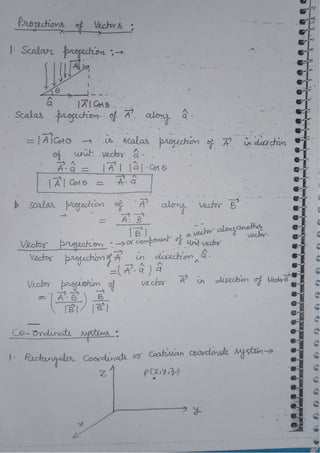 Projections of Vectors :
1. Scalar projection :→
|A⃗|
θ
â |A⃗| Cosθ
Scalar projection of A⃗ along â.
= |A⃗|Cosθ → is scalar projection of A⃗ in direction
of unit vector â.
A⃗.â = |A⃗| |â| Cosθ
|A⃗| Cosθ = A⃗.â
scalar projection of A⃗ along vector B⃗
= A⃗.B⃗
|B⃗|
Vector projection :→ or component of a vector along another
unit vector vector.
Vector projection of A⃗ in direction, â.
= (A⃗.â) â
Vector projection of vector A⃗ in direction of Vector B⃗
= (A⃗.B⃗ / |B⃗|) B⃗ / |B⃗|
Co-ordinate systems :
1. Rectangular Coordinate or Cartisian coordinate system→
Z P(x,y,z)
y
x